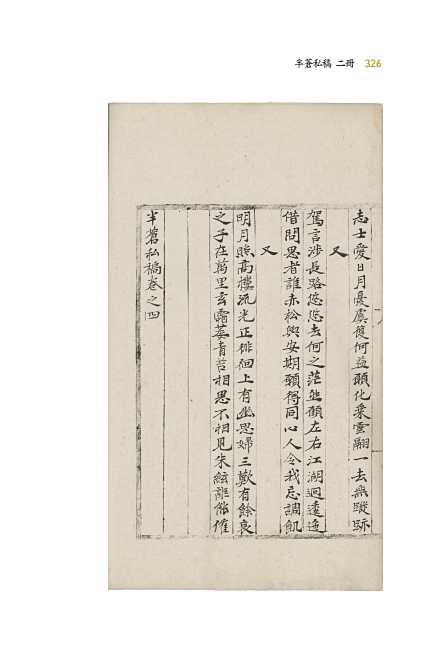 半蒼私稿 二冊 326
志士愛日月憂虞復何益願化乘雲翮一去無蹤跡
又
駕言涉長路悠悠去何之茫然顧左右江湖迥逶迤
借問思者誰赤松與安期願得同心人令我忘調飢
又
明月照高樓流光正徘徊上有幽思婦三歎有餘哀
之子在萬里玄霜萎青苔相思不相見朱絃誰催
半蒼私稿卷之四